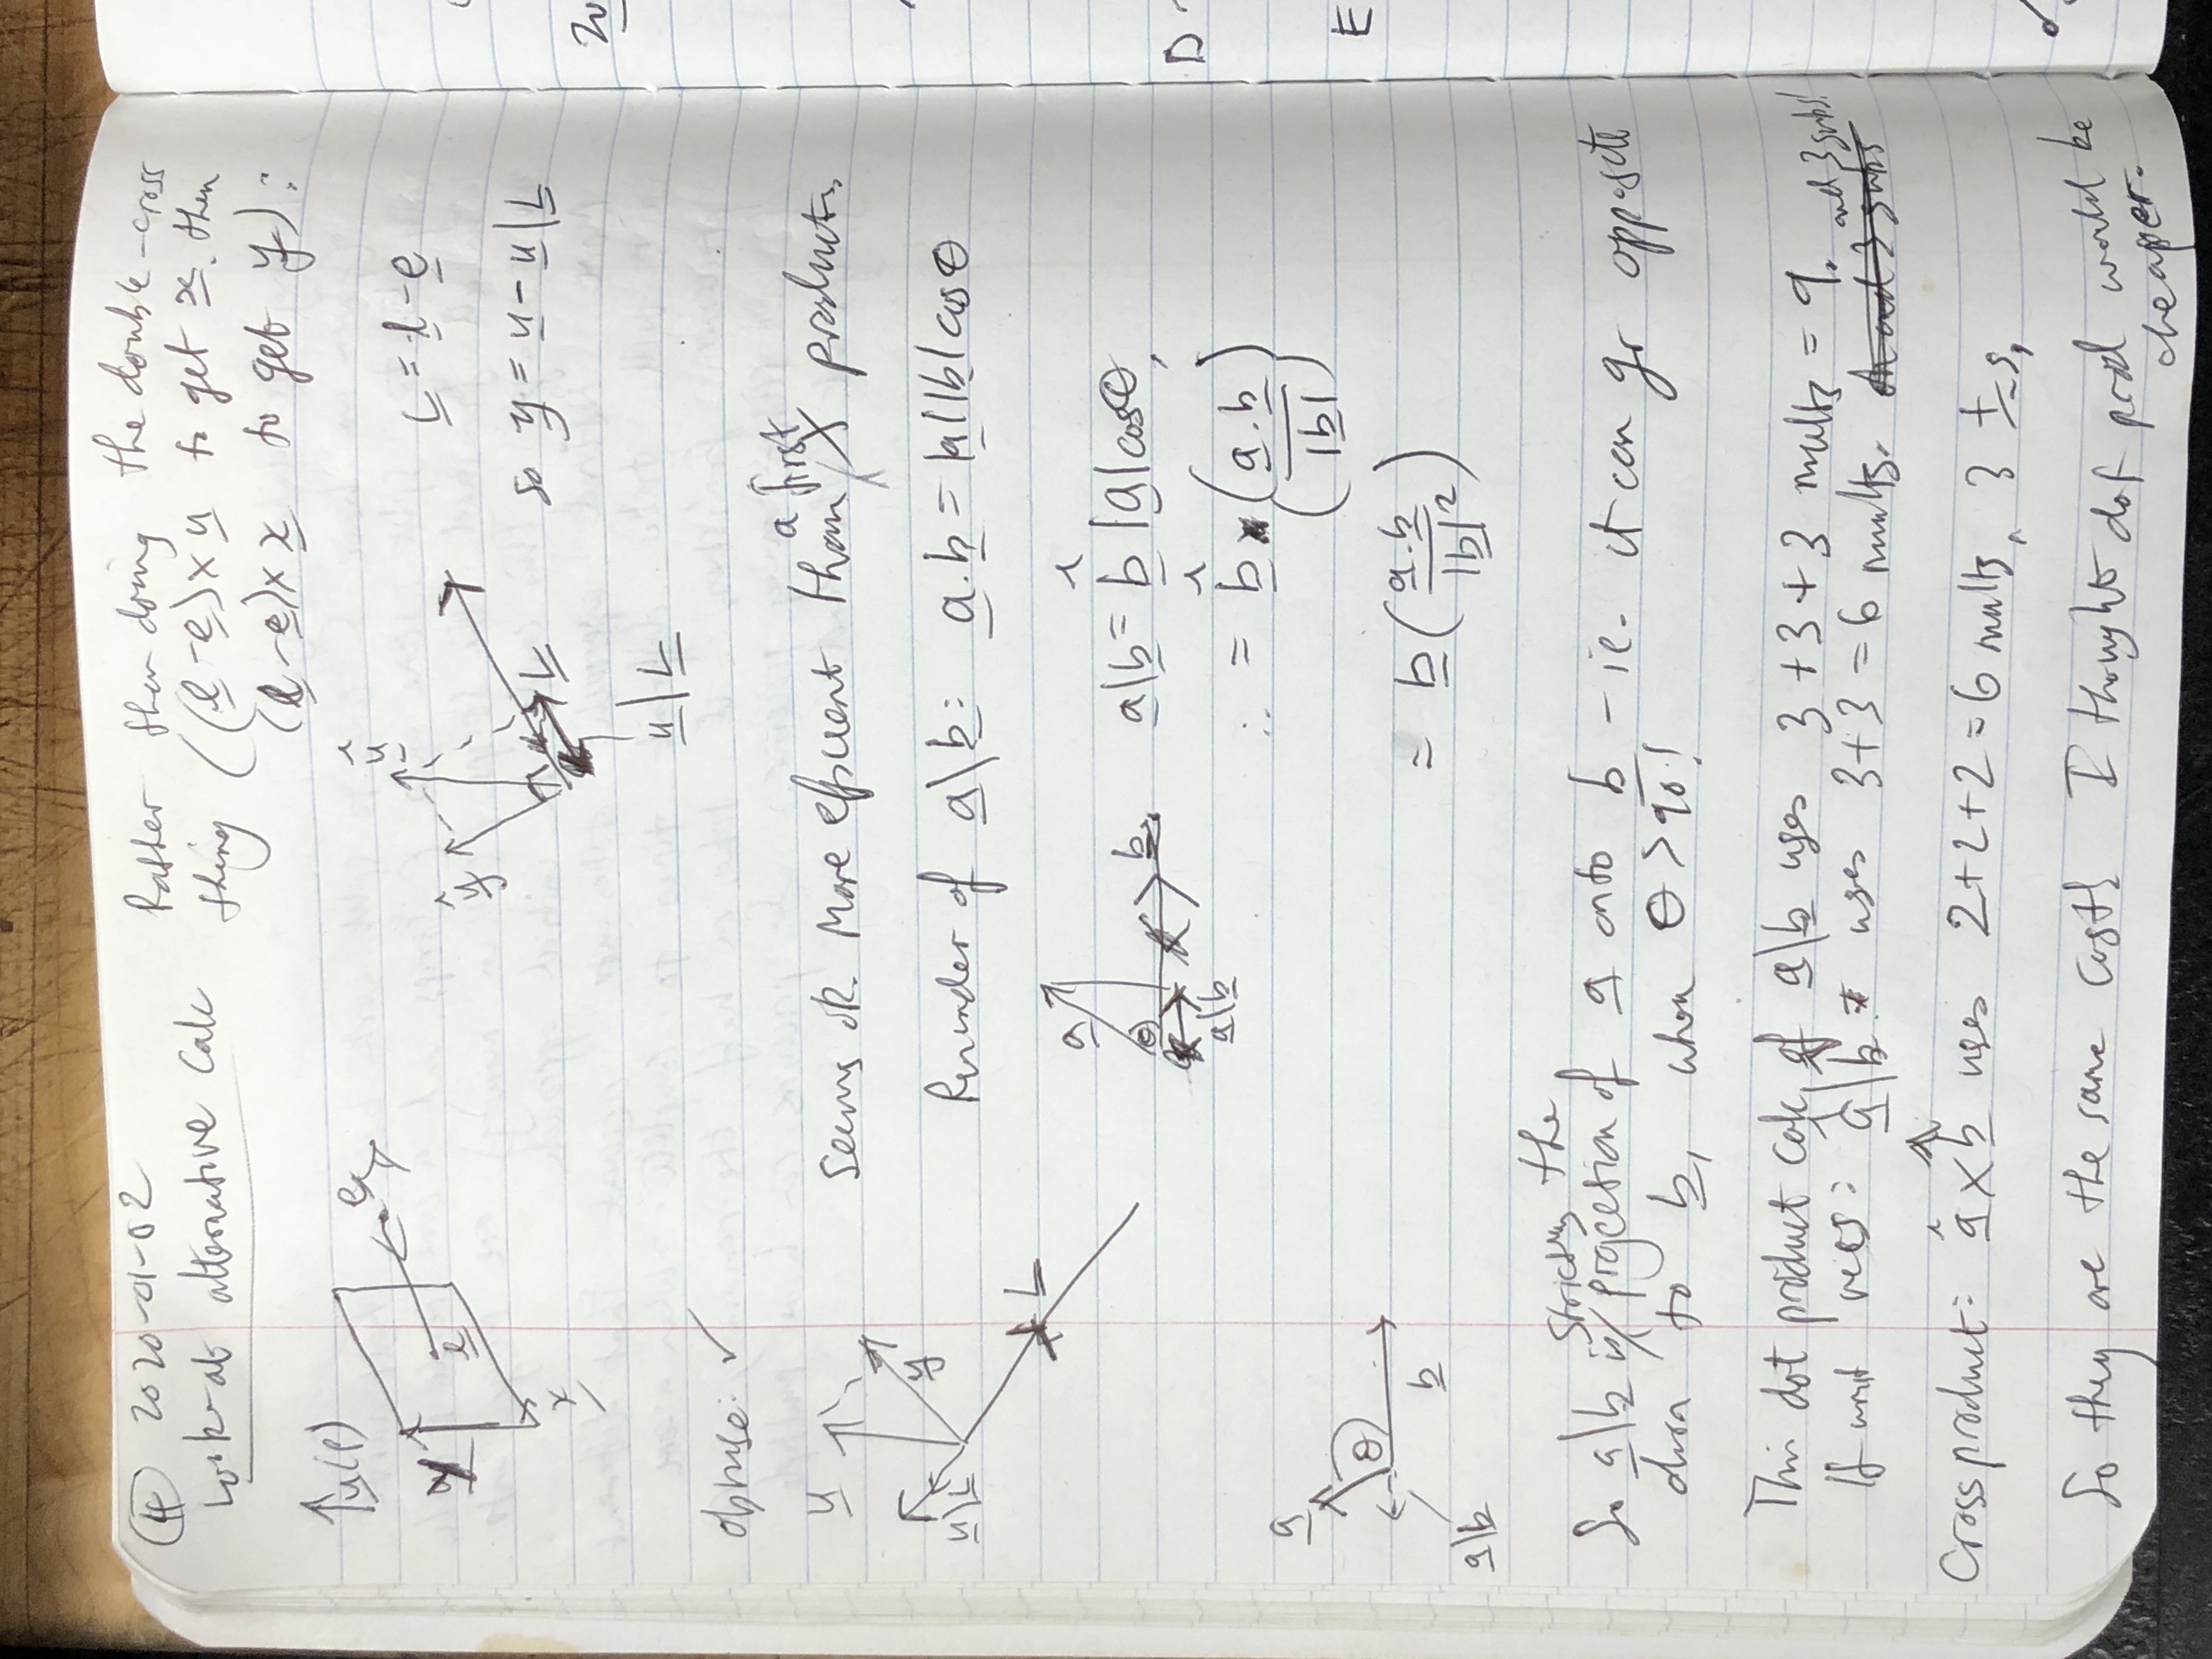 ④ 2020-01-02
Look-at alternative calc
Rather than doing the double-cross
thing ((l-e)×u to get x, then
(l-e)×x to get y):
u(p)
e
y
l
x
û
ŷ
L
u|L
L = l-e
so y = u - u|L
obtuse: ✓
u
y
u|L
L
Seems ok. More efficient than a first X product.
Reminder of a|b: a.b = |a||b|cosθ
a
θ
b
a|b
a|b = b̂ |a|cosθ,
∴ = b̂ (a.b / |b|)
= b (a.b / |b|²)
a
θ
b
a|b
So a|b is strictly the projection of a onto b - ie. it can go opposite
dirn to b, when θ > 90!
This dot product calc of a|b uses 3+3+3 mults = 9.
If unit vecs: â|b̂ uses 3+3 = 6 mults. and 3 subs!
Cross product: â×b̂ uses 2+2+2=6 mults, 3 ±s,
So they are the same cost! I thought dot prod would be
cheaper.
20
D
E